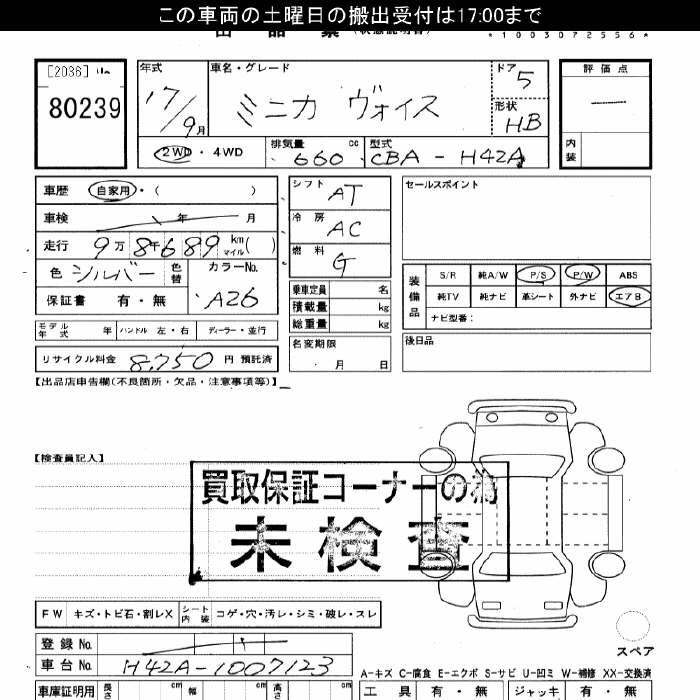 この車両の土曜日の搬出受付は17:00まで
*1003072556*
[2036]
80239
年式 17/9月
車名・グレード ミニカ ヴォイス
ドア 5
形状 HB
評価点 ―
内装
2WD・4WD
排気量 660 cc
型式 CBA-H42A
車歴 自家用・( )
車検 年 月
走行 9万8千689 km マイル( )
色 シルバー 色替
カラーNo. A26
保証書 有・無
シフト AT
冷房 AC
燃料 G
セールスポイント
乗車定員 名
積載量 kg
総重量 kg
装備品
S/R 純A/W P/S P/W ABS
純TV 純ナビ 革シート 外ナビ エアB
ナビ型番:
モデル年式 年 ハンドル 左・右 ディーラー・並行
リサイクル料金 8,750 円 預託済
名変期限 ・ 月 日
後日品
【出品店申告欄(不良箇所・欠品・注意事項等)】
【検査員記入】
買取保証コーナーの為
未検査
FW キズ・トビ石・割レX シート内装 コゲ・穴・汚レ・シミ・破レ・スレ
登録No.
車台No. H42A-1007123
スペア
A-キズ C-腐食 E-エクボ S-サビ U-凹ミ W-補修 XX-交換済
車庫証明用 長さ cm 幅 cm 高さ cm
工具 有・無 ジャッキ 有・無